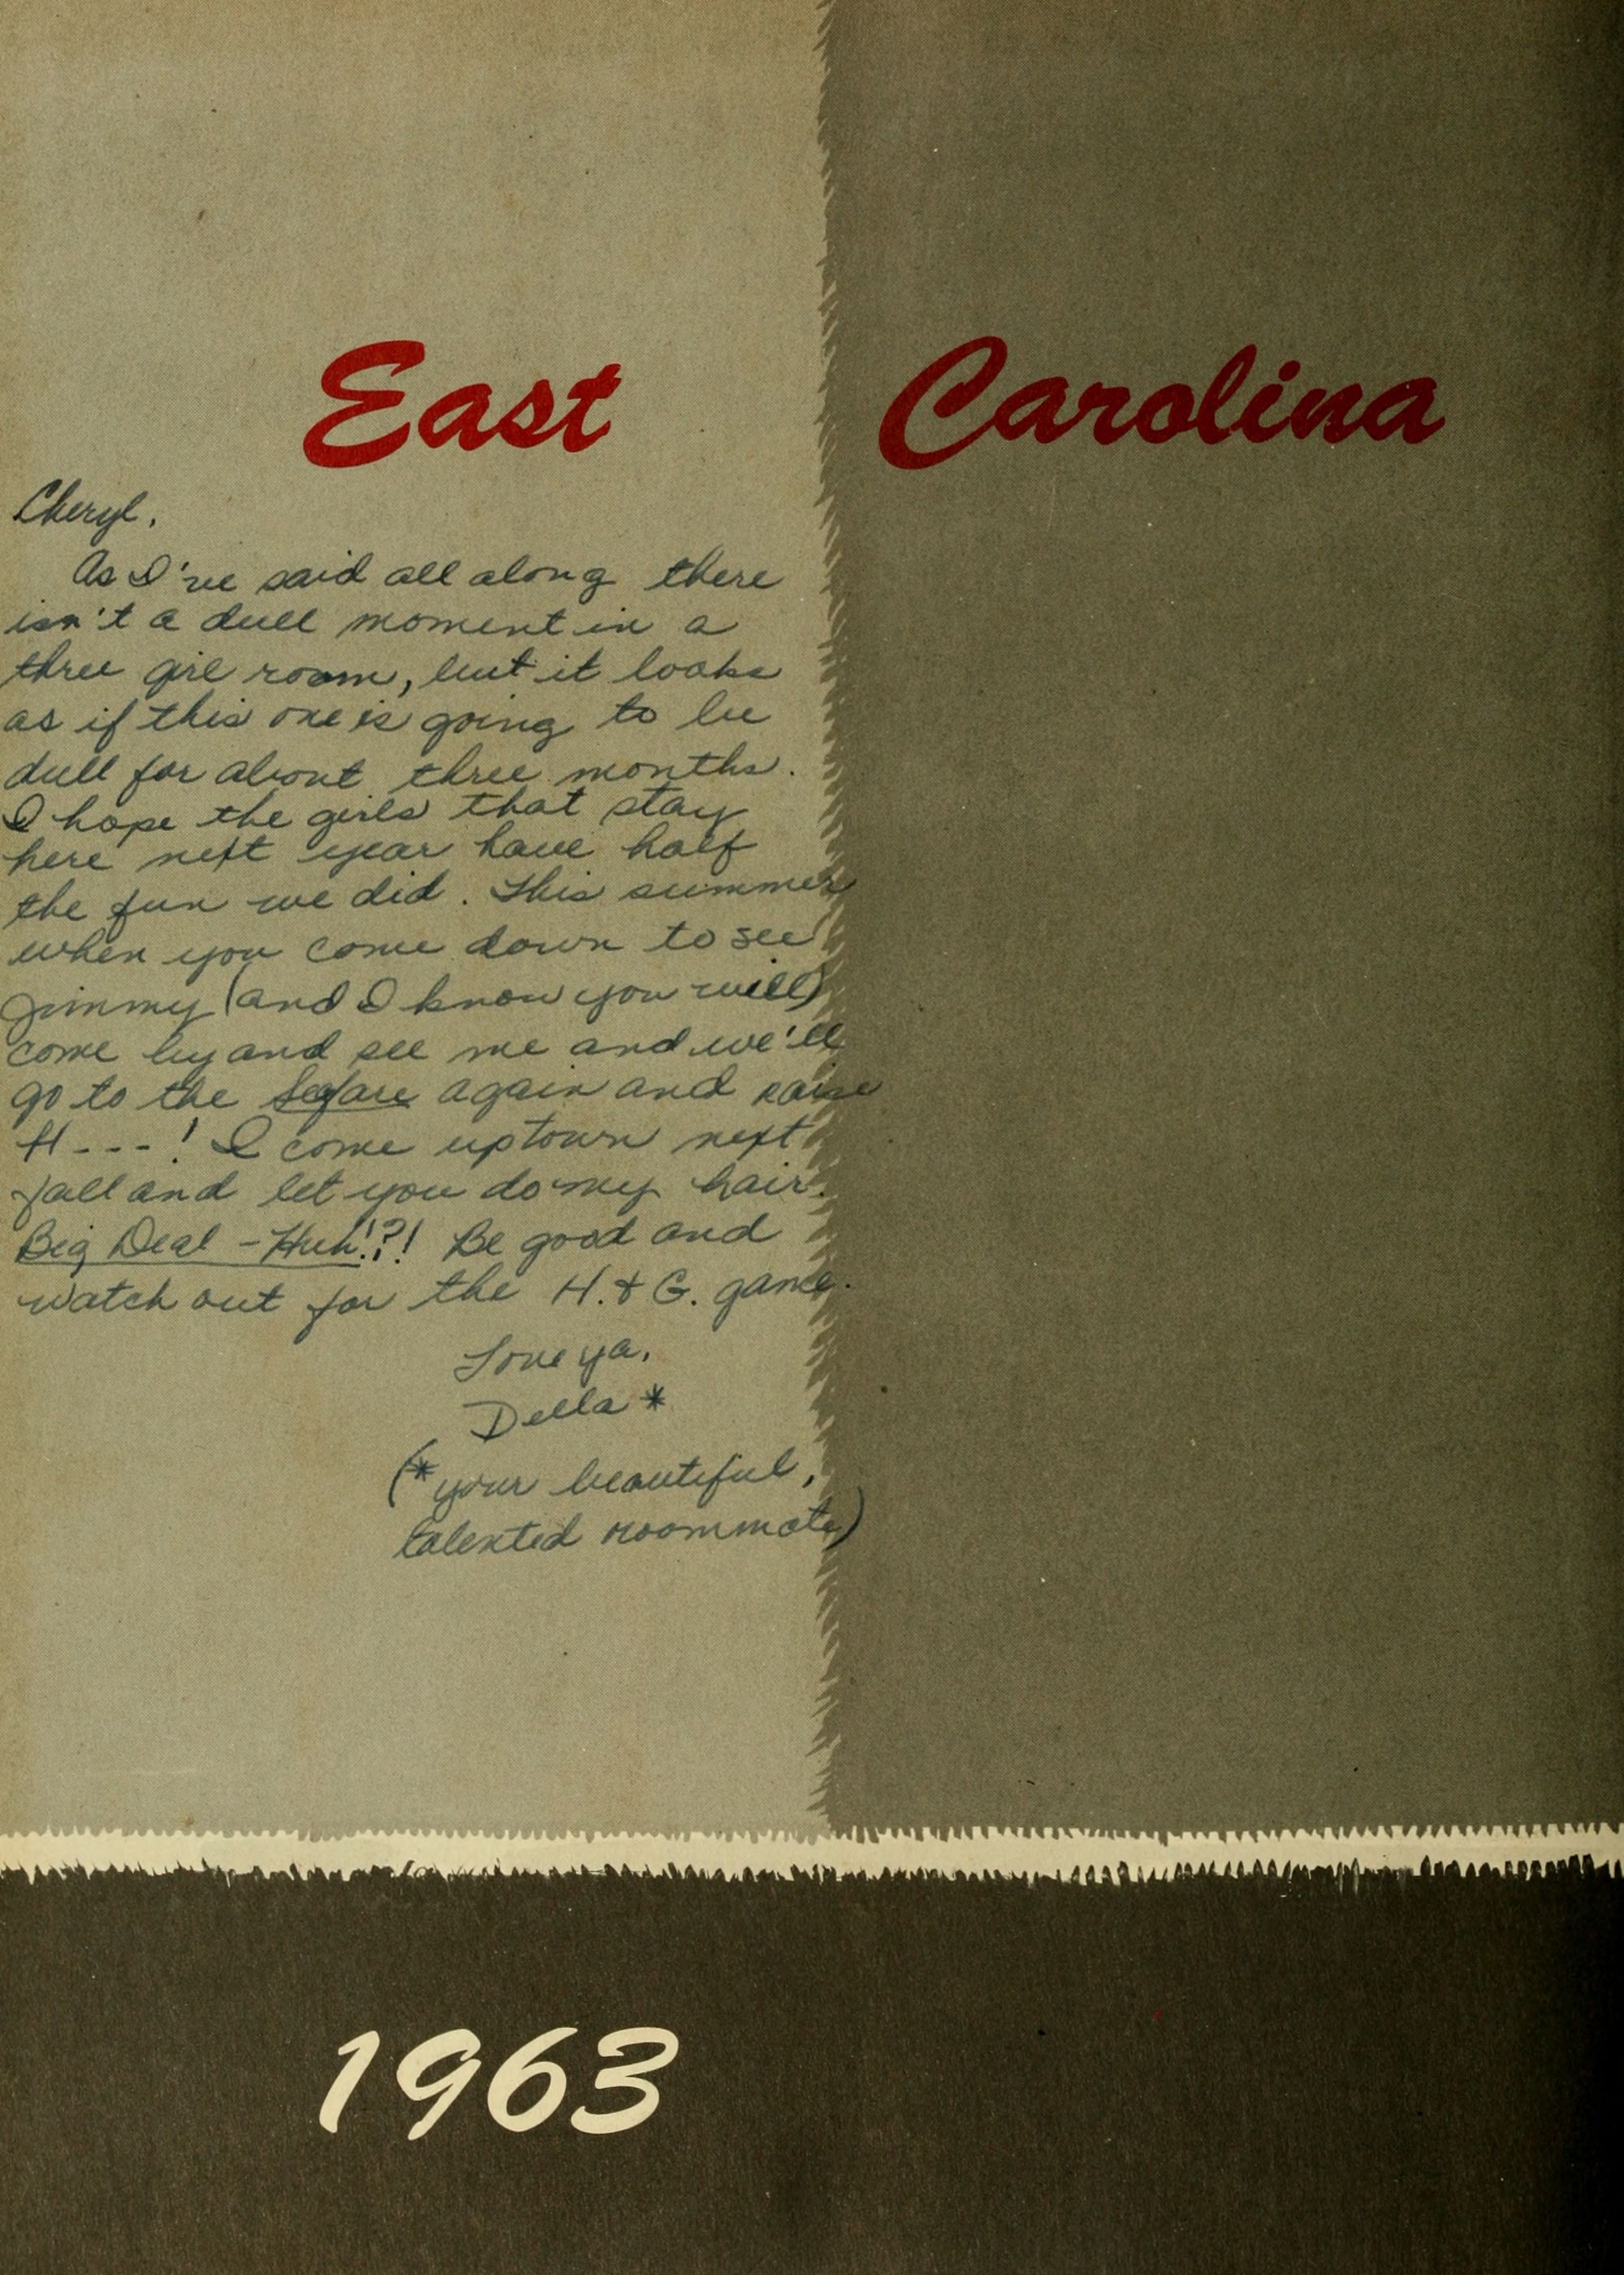 East Carolina
Cheryl,
As I've said all along there
isn't a dull moment in a
three girl room, but it looks
as if this one is going to be
dull for about three months.
I hope the girls that stay
here next year have half
the fun we did. This summer
when you come down to see
Jimmy (and I know you will)
come by and see me and we'll
go to the again and raise
H---! I come uptown next
fall and let you do my hair.
Big Deal - Huh!?! Be good and
watch out for the H. & G. game.
Love ya,
Della *
(*your beautiful,
talented roommate)
1963